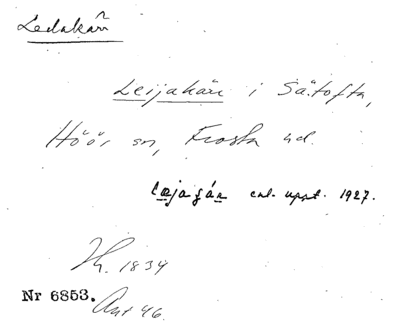 Ledakärr
Leijakärr i Sätofta,
Höör sn, Frosta hd.
enl. uppt. 1927.
Jh. 1834
Nr 6853.
Ant 46.